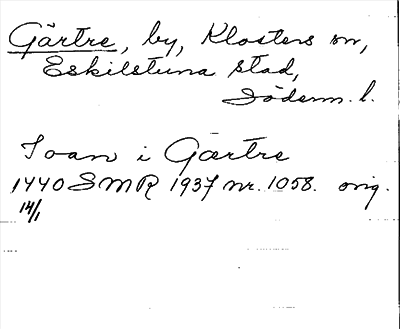 Gärtre, by, Klosters sn,
Eskilstuna stad,
Söderm. l.
Joan i Gærtre
1440 SMR 1937 nr. 1058. orig.
14/1